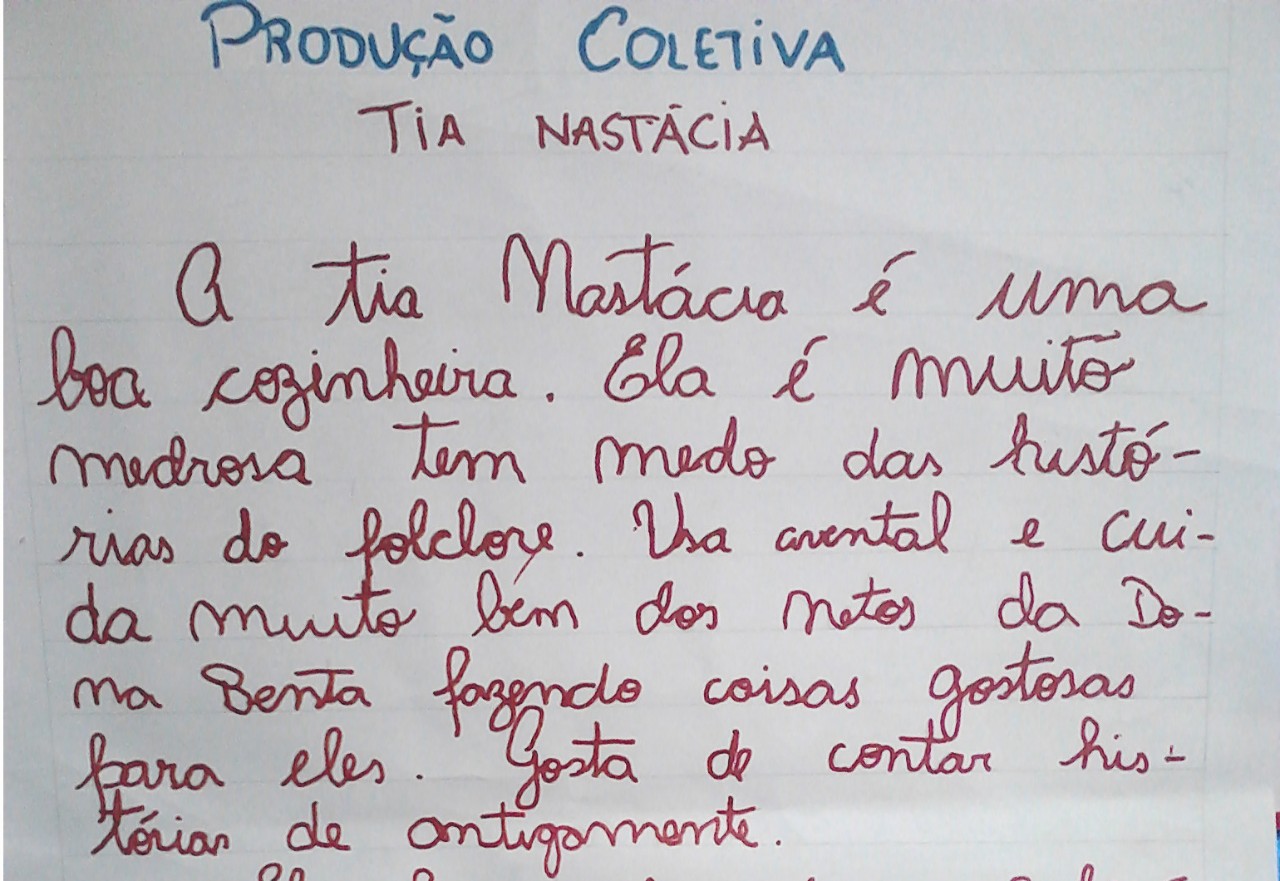 PRODUÇÃO COLETIVA
TIA NASTÁCIA
A tia Nastácia é uma
boa cozinheira. Ela é muito
medrosa tem medo das histó-
rias do folclore. Usa avental e cui-
da muito bem dos netos da Do-
na Benta fazendo coisas gostosas
para eles. Gosta de contar his-
tórias de antigamente.